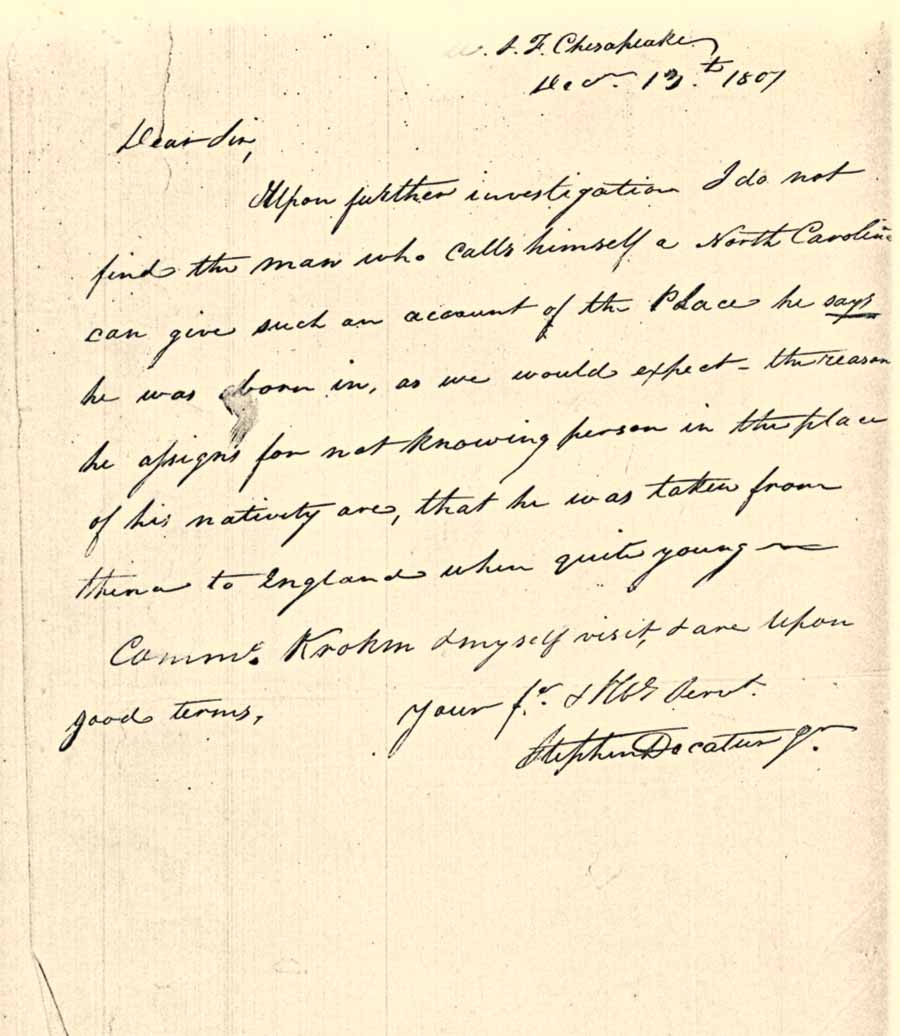 U. S. F. Chesapeake
Decr. 13.th 1807
Dear Sir,
Upon further investigation I do not
find the man who calls himself a North Carolinia
can give such an account of the Place he says
he was born in, as we would expect - the reason
he assigns for not knowing person in the place
of his nativity are, that he was taken from
thence to England when quite young —
Commr. Krohm & myself visit, & are upon
good terms,
Your fr. & Hble Servt.
Stephen Decatur Jr.